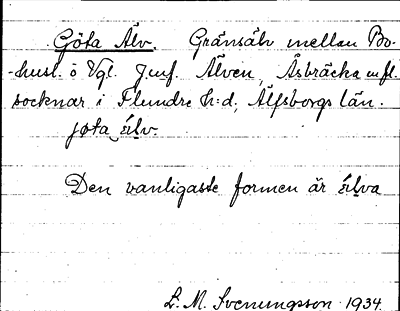 Göta Älv. Gränsälv mellan Bo-
-husl. o Vgl. Jmf. Älven, Åsbräcka m fl.
socknar i Flundre h:d, Älfsborgs län.
jøta ɛ́ḷv.
Den vanligaste formen är ɛ́ḷva
L. M. Svenungsson 1934.